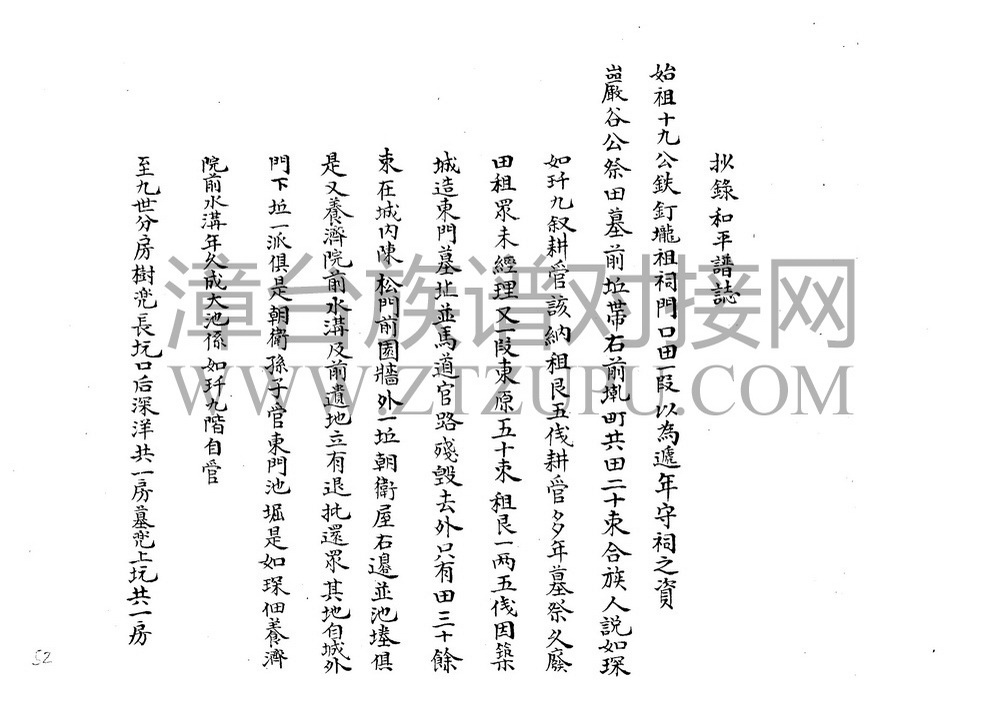 抄錄和平譜誌
始祖十九公鉄釘壠祖祠門口田一段以為遞年守祠之資
巖谷公祭田墓前坵帶右前墘町共田二十束合族人説如琛
如玕九叙耕管該納租艮五伐耕管多年墓祭久廢
田租眾未經理又一段東原五十束租艮一两五伐因築
城造東門墓址並馬道官路殘毀去外只有田三十餘
束在城内陳松門前園牆外一坵朝衛屋右邊並池墘俱
是又養濟院前水溝及前遺地立有退批還眾其地自城外
門下坵一派俱是朝衛孫子官東門池堀是如琛佃養濟
院前水溝年久成大池係如玕九階自管
至九世分房樹兜長坑口后深洋共一房墓兜上坑共一房
52
漳台族谱对接网
WWW.ZTZUPU.COM